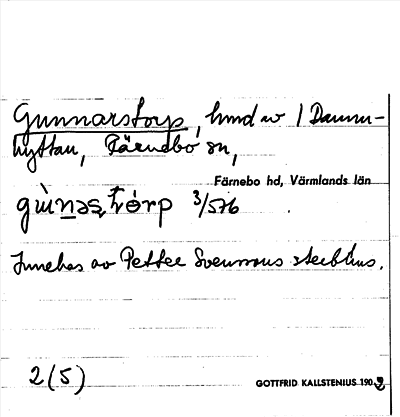 Gunnarstorp, hmd av 1 Damm-
hyttan, Färnebo sn,
Färnebo hd, Värmlands län
3/576
Innehas av Petter Svenssons sterbhus.
2(5)
GOTTFRID KALLSTENIUS 190